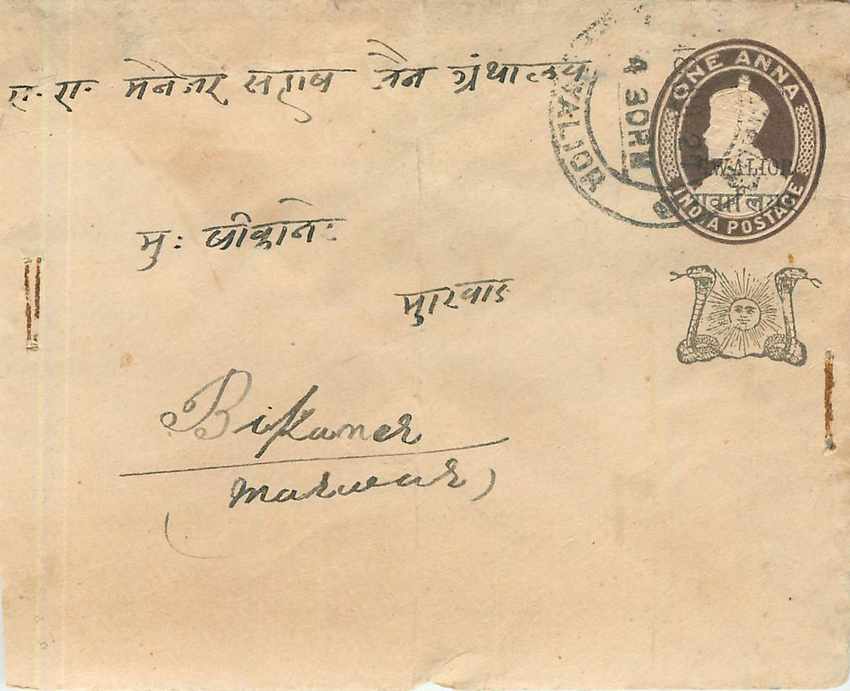 ONE ANNA
GWALIOR
4 30PM
GWALIOR
ग्वालियर
INDIA POSTAGE
मैनेजर साहब जैन ग्रंथालय
मु: बीकानेर
मारवाड
Bikaner
(Marwar)